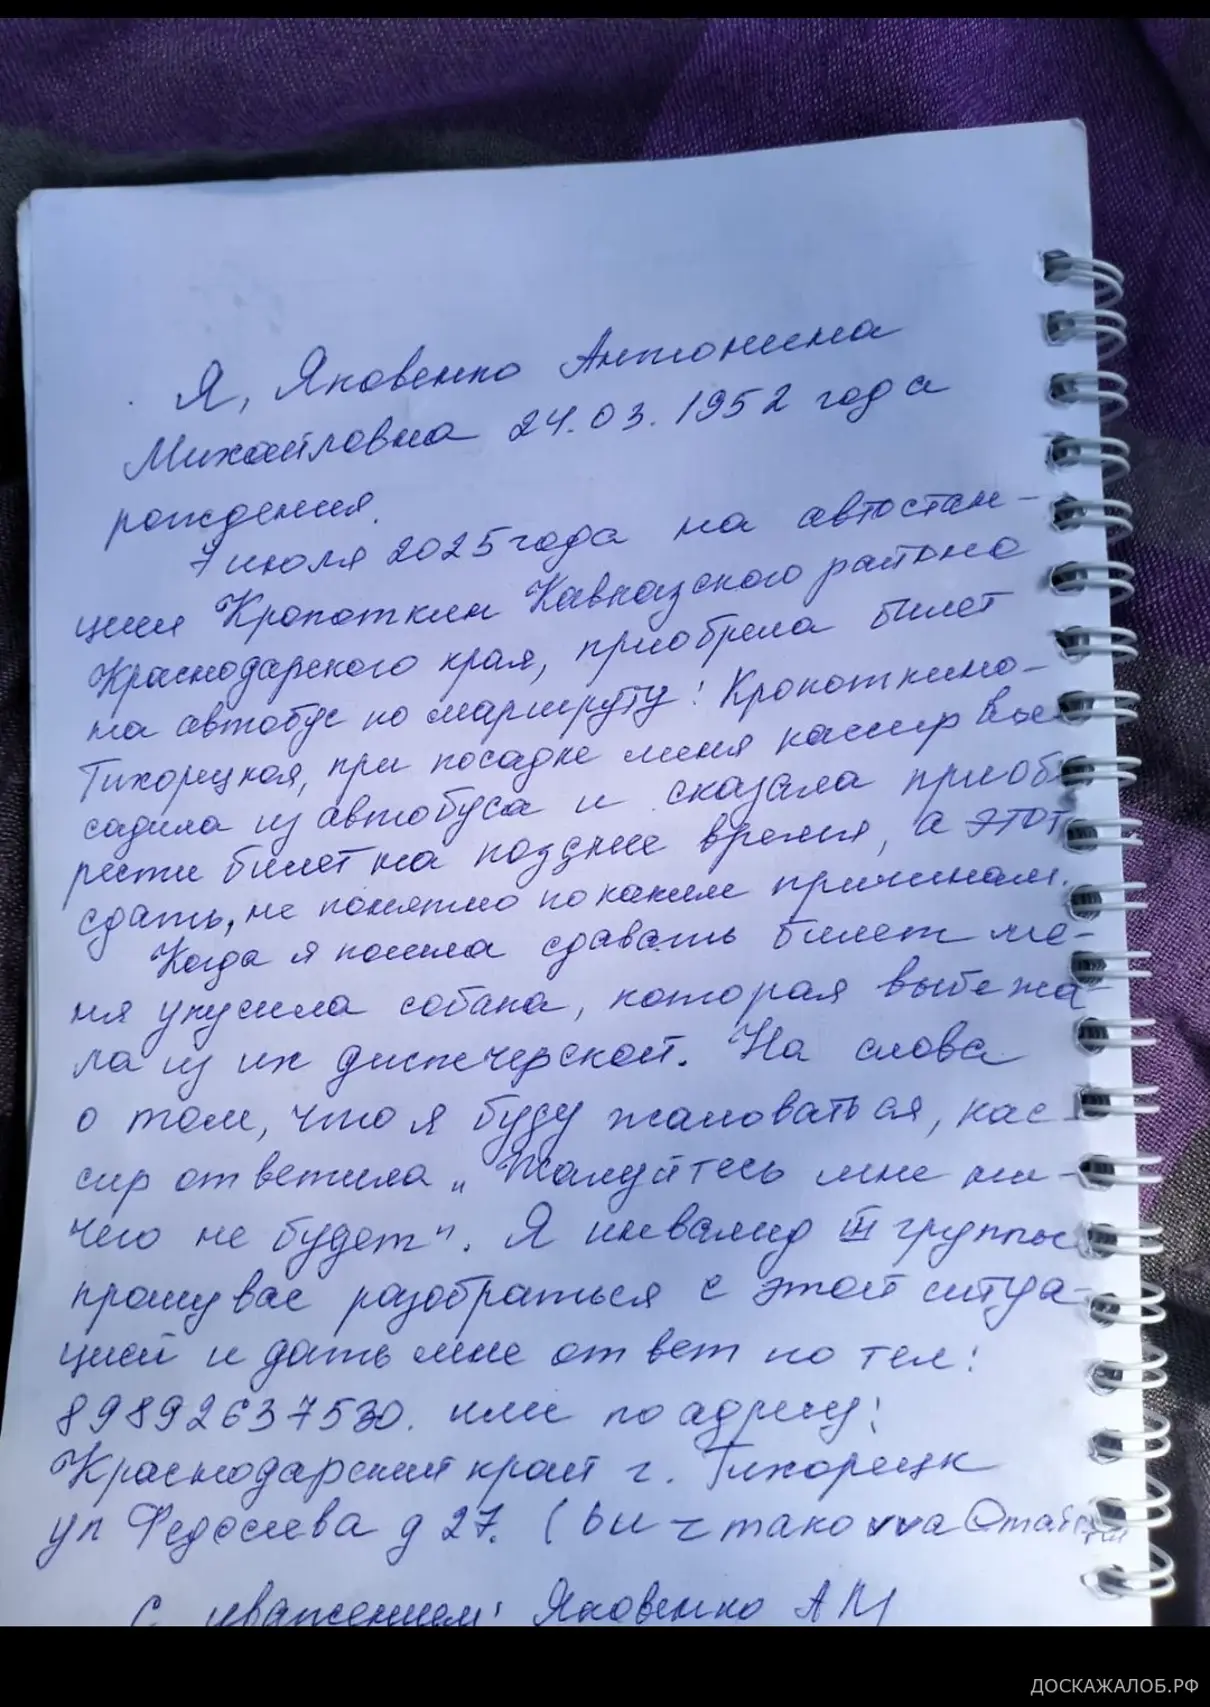 Я, Яковенко Антонина
Михайловна 24.03.1952 года
рождения.
7 июля 2025 года на автостан-
ции Кропоткин Кавказского района
Краснодарского края, приобрела билет
на автобус по маршруту: Кропоткино-
Тихорецкая, при посадке меня кассир вы
садила из автобуса и сказала приоб
рести билет на позднее время, а этот
сдать, не понятно по каким причинам.
Когда я пошла сдавать билет ме-
ня укусила собака, которая выбежа-
ла из их диспчерской. На слова
о том, что я буду жаловаться, кас-
сир ответила „Жалуйтесь мне ни-
чего не будет". Я инвалид III группы
прошу вас разобраться с этой ситуа-
цией и дать мне ответ по тел:
89892637530. или по адресу:
Краснодарский край г. Тихорецк
ул Федосеева д 27. (
С уважением: Яковенко АМ
ДОСКАЖАЛОБ.РФ